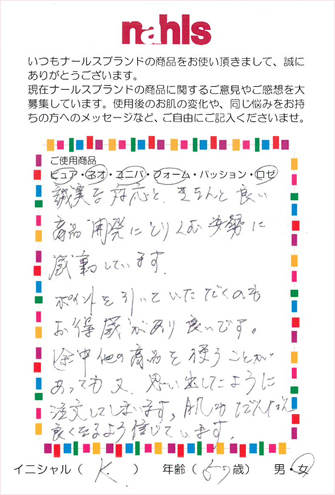 nahls
いつもナールスブランドの商品をお使い頂きまして、誠に
ありがとうございます。
現在ナールスブランドの商品に関するご意見やご感想を大
募集しています。使用後のお肌の変化や、同じ悩みをお持
ちの方へのメッセージなど、ご自由にご記入くださいませ。
ご使用商品
ピュア・ネオ・ユニバ・フォーム・パッション・ロゼ
誠実な対応と、きちんと良い
商品開発にとりくむ姿勢に
感動しています。
ポイントを引いていただくのも
お得感があり良いです。
途中他の商品を使うことが
あっても又、思い出したように
注文してしまいます。肌もだんだん
良くなるよう信じています。
イニシャル( K. ) 年齢( 57歳) 男・女